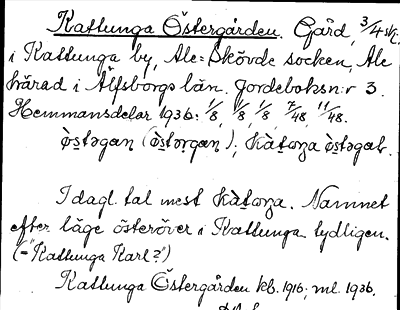 Kattunga Östergården. Gård, 3/4 sk.
i Kattunga by, Ale-Skövde socken, Ale
härad i Älfsborgs län. Jordeboksn:r 3.
Hemmansdelar 1936: 1/8, 1/8, 1/8, 7/48, 11/48.
I dagl. tal mest Namnet
efter läge österöver i Kattunga tydligen.
(="Kattunga Karl?")
Kattunga Östergården kb. 1916; ml. 1936.